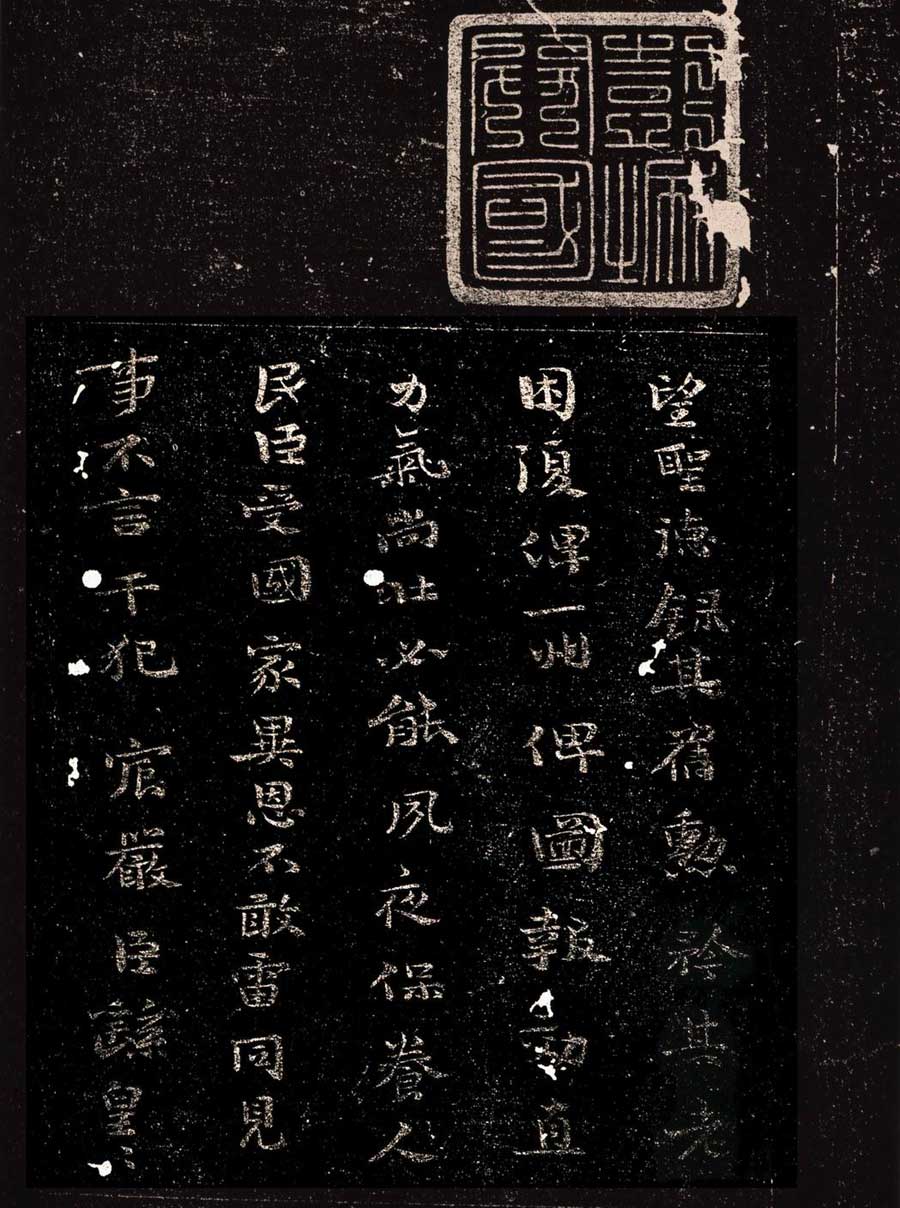 彭城開國
望聖德錄其舊勳矜其老
困復俾一州俾圖報効直
力氣尚壯必能夙夜保養人
民臣受國家異恩不敢雷同見
事不言干犯宸嚴臣繇皇〻